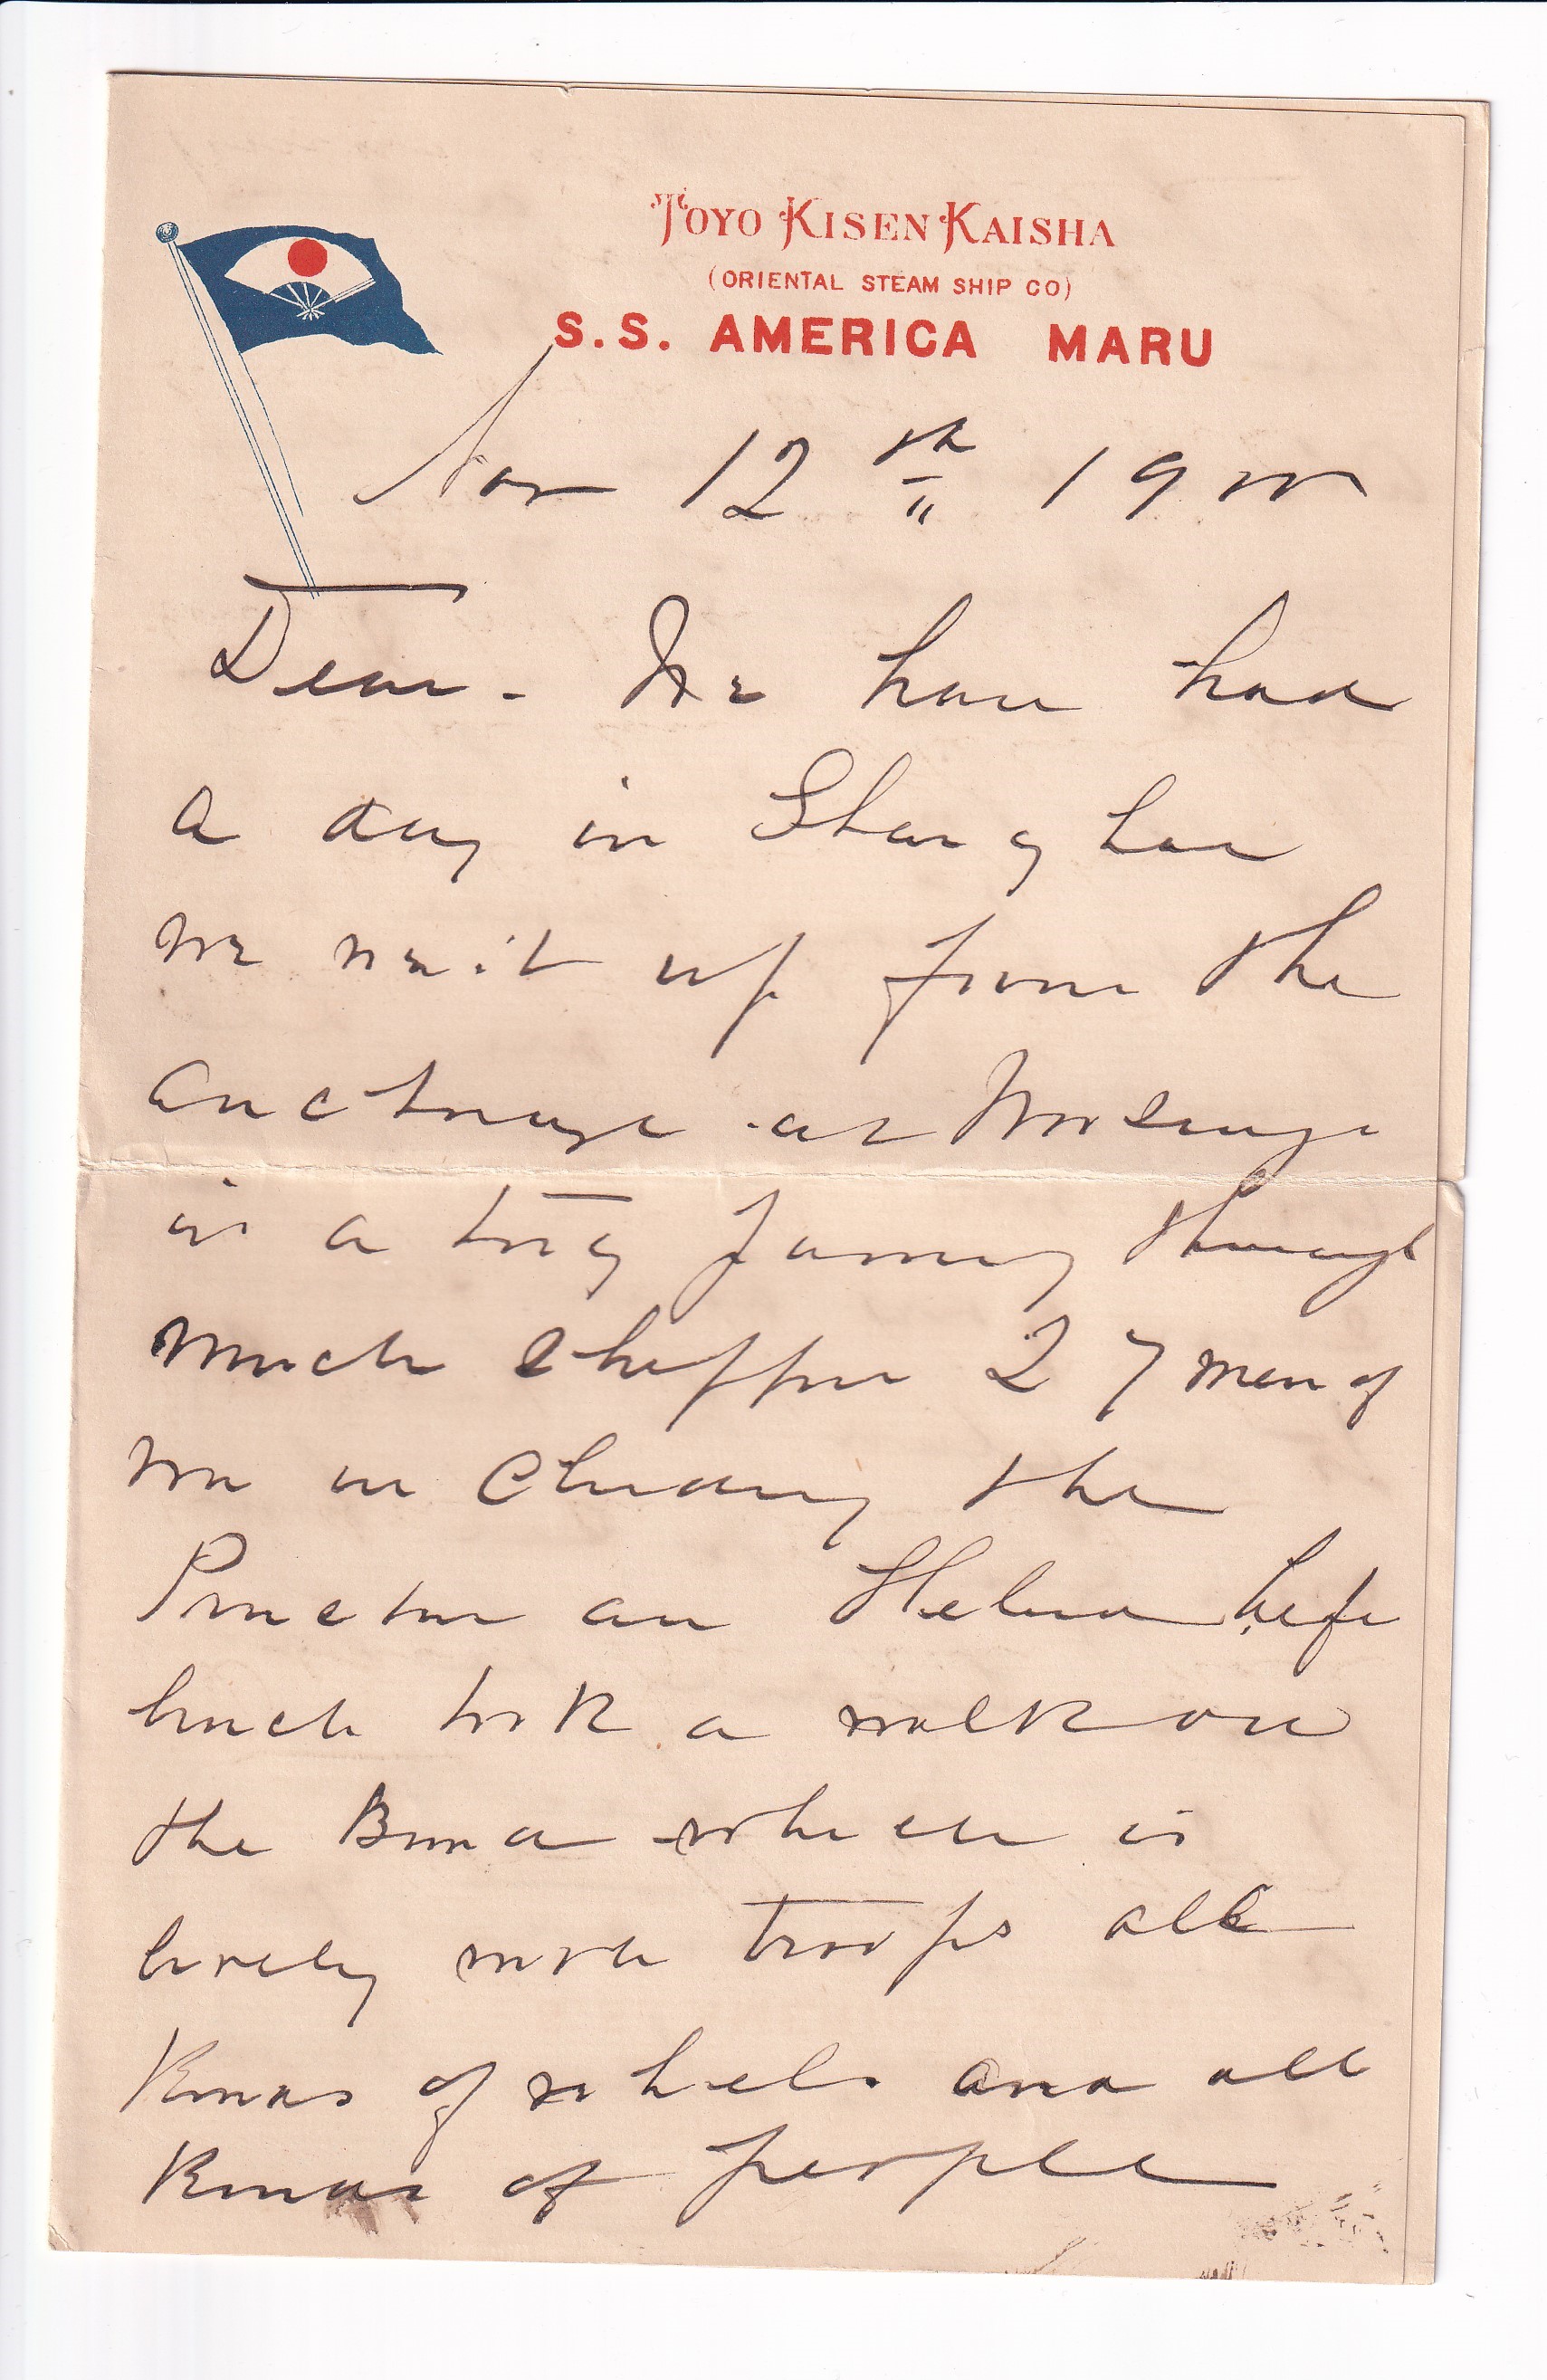 TOYO KISEN KAISHA
(ORIENTAL STEAM SHIP CO)
S.S. AMERICA MARU
Nov 12th 1900
Dear - We have had
a day in Shanghai
we went up from the
anchorage at Woosung
in a tug Journey through
much shipping 27 men of
war including the
Princeton and Helena
lunch took a walk on
the Bund which is
lovely with troops all
Kinds of wheels and all
Kinds of people